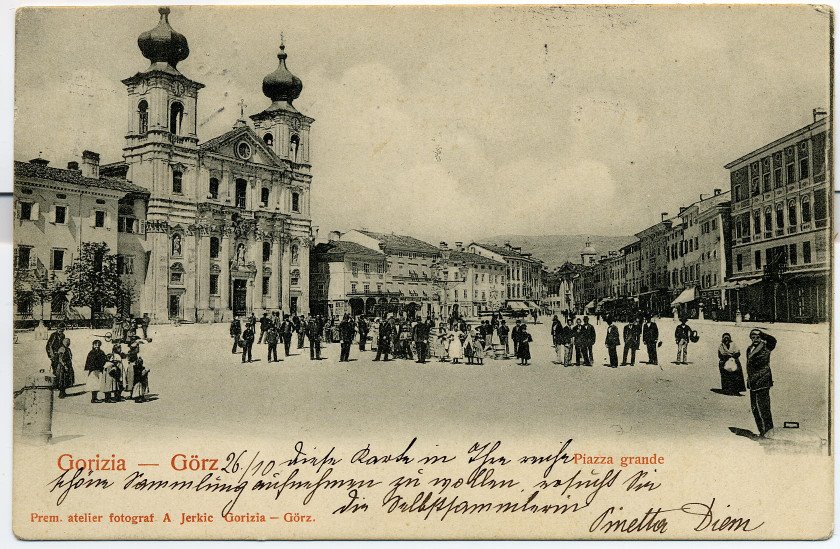 Gorizia — Görz
Piazza grande
26/10 diese Karte in Ihre reiche
schöne Sammlung aufnehmen zu wollen, ersucht Sie
die Selbstsammlerin
Pinetta Diem
Prem. atelier fotograf A Jerkic Gorizia – Görz.